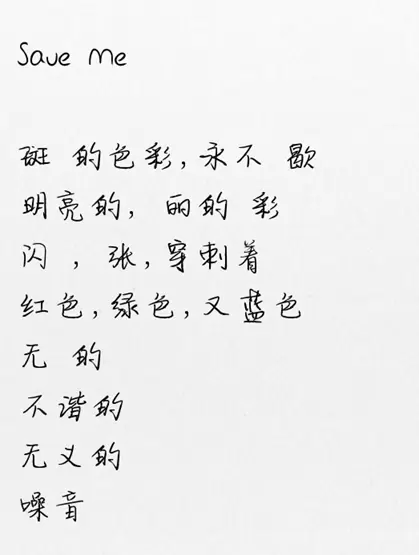 Save Me
斑 的色彩,永不 歇
明亮的, 丽的 彩
闪 , 张,穿刺着
红色,绿色,又蓝色
无 的
不谐的
无义的
噪音